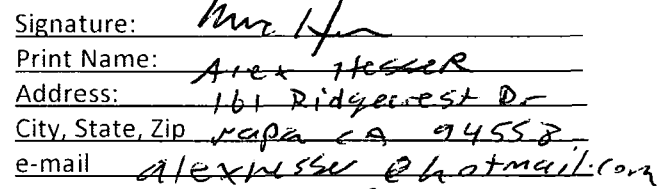 Signature:
Print Name: Alex Hesser
Address: 161 Ridgecrest Dr
City, State, Zip Napa CA 94558
e-mail alexhesser@hotmail.com